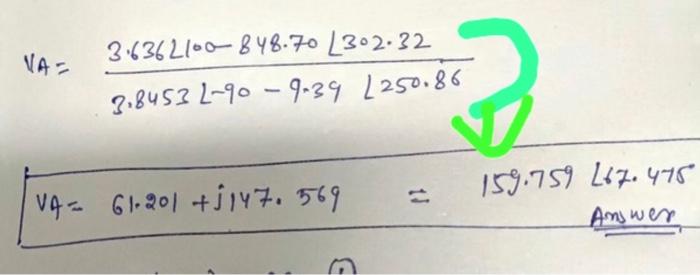 VA = 3.636∠100 - 848.70 ∠302.32
3.8453 ∠-90 - 9.39 ∠250.86
VA = 61.201 + j147.569 = 159.759 ∠67.475
Answer